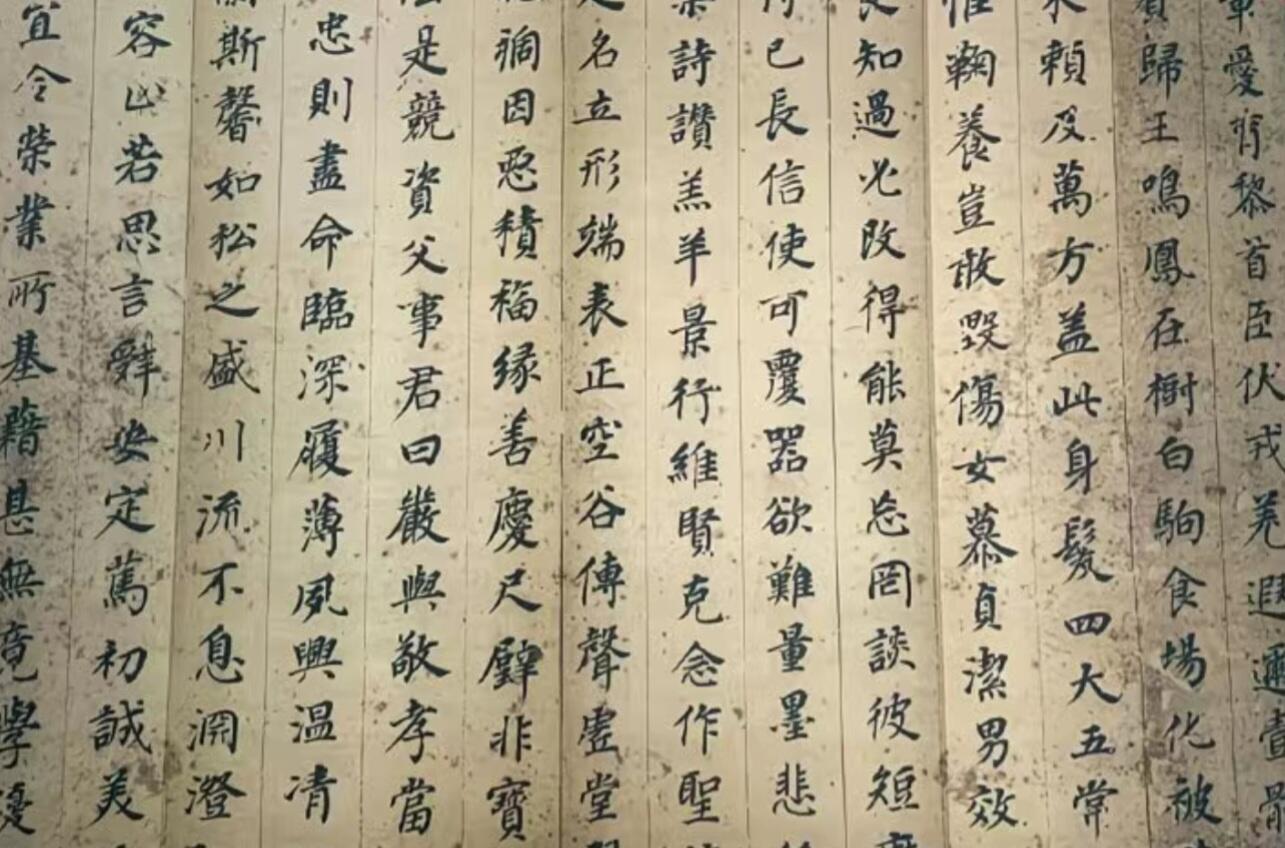 章愛育黎首臣伏戎羌遐邇壹體
賓歸王鳴鳳在樹白駒食場化被
木賴及萬方盖此身髮四大五常
惟鞠養豈敢毀傷女慕貞潔男效
良知過必改得能莫忘罔談彼短
恃己長信使可覆器欲難量墨悲
染詩讚羔羊景行維賢克念作聖
建名立形端表正空谷傳聲虛堂
禍因惡積福緣善慶尺璧非寶
是競資父事君曰嚴與敬孝當
忠則盡命臨深履薄夙興温凊
蘭斯馨如松之盛川流不息淵澄
容止若思言辭安定篤初誠美
宜令榮業所基籍甚無竟學優